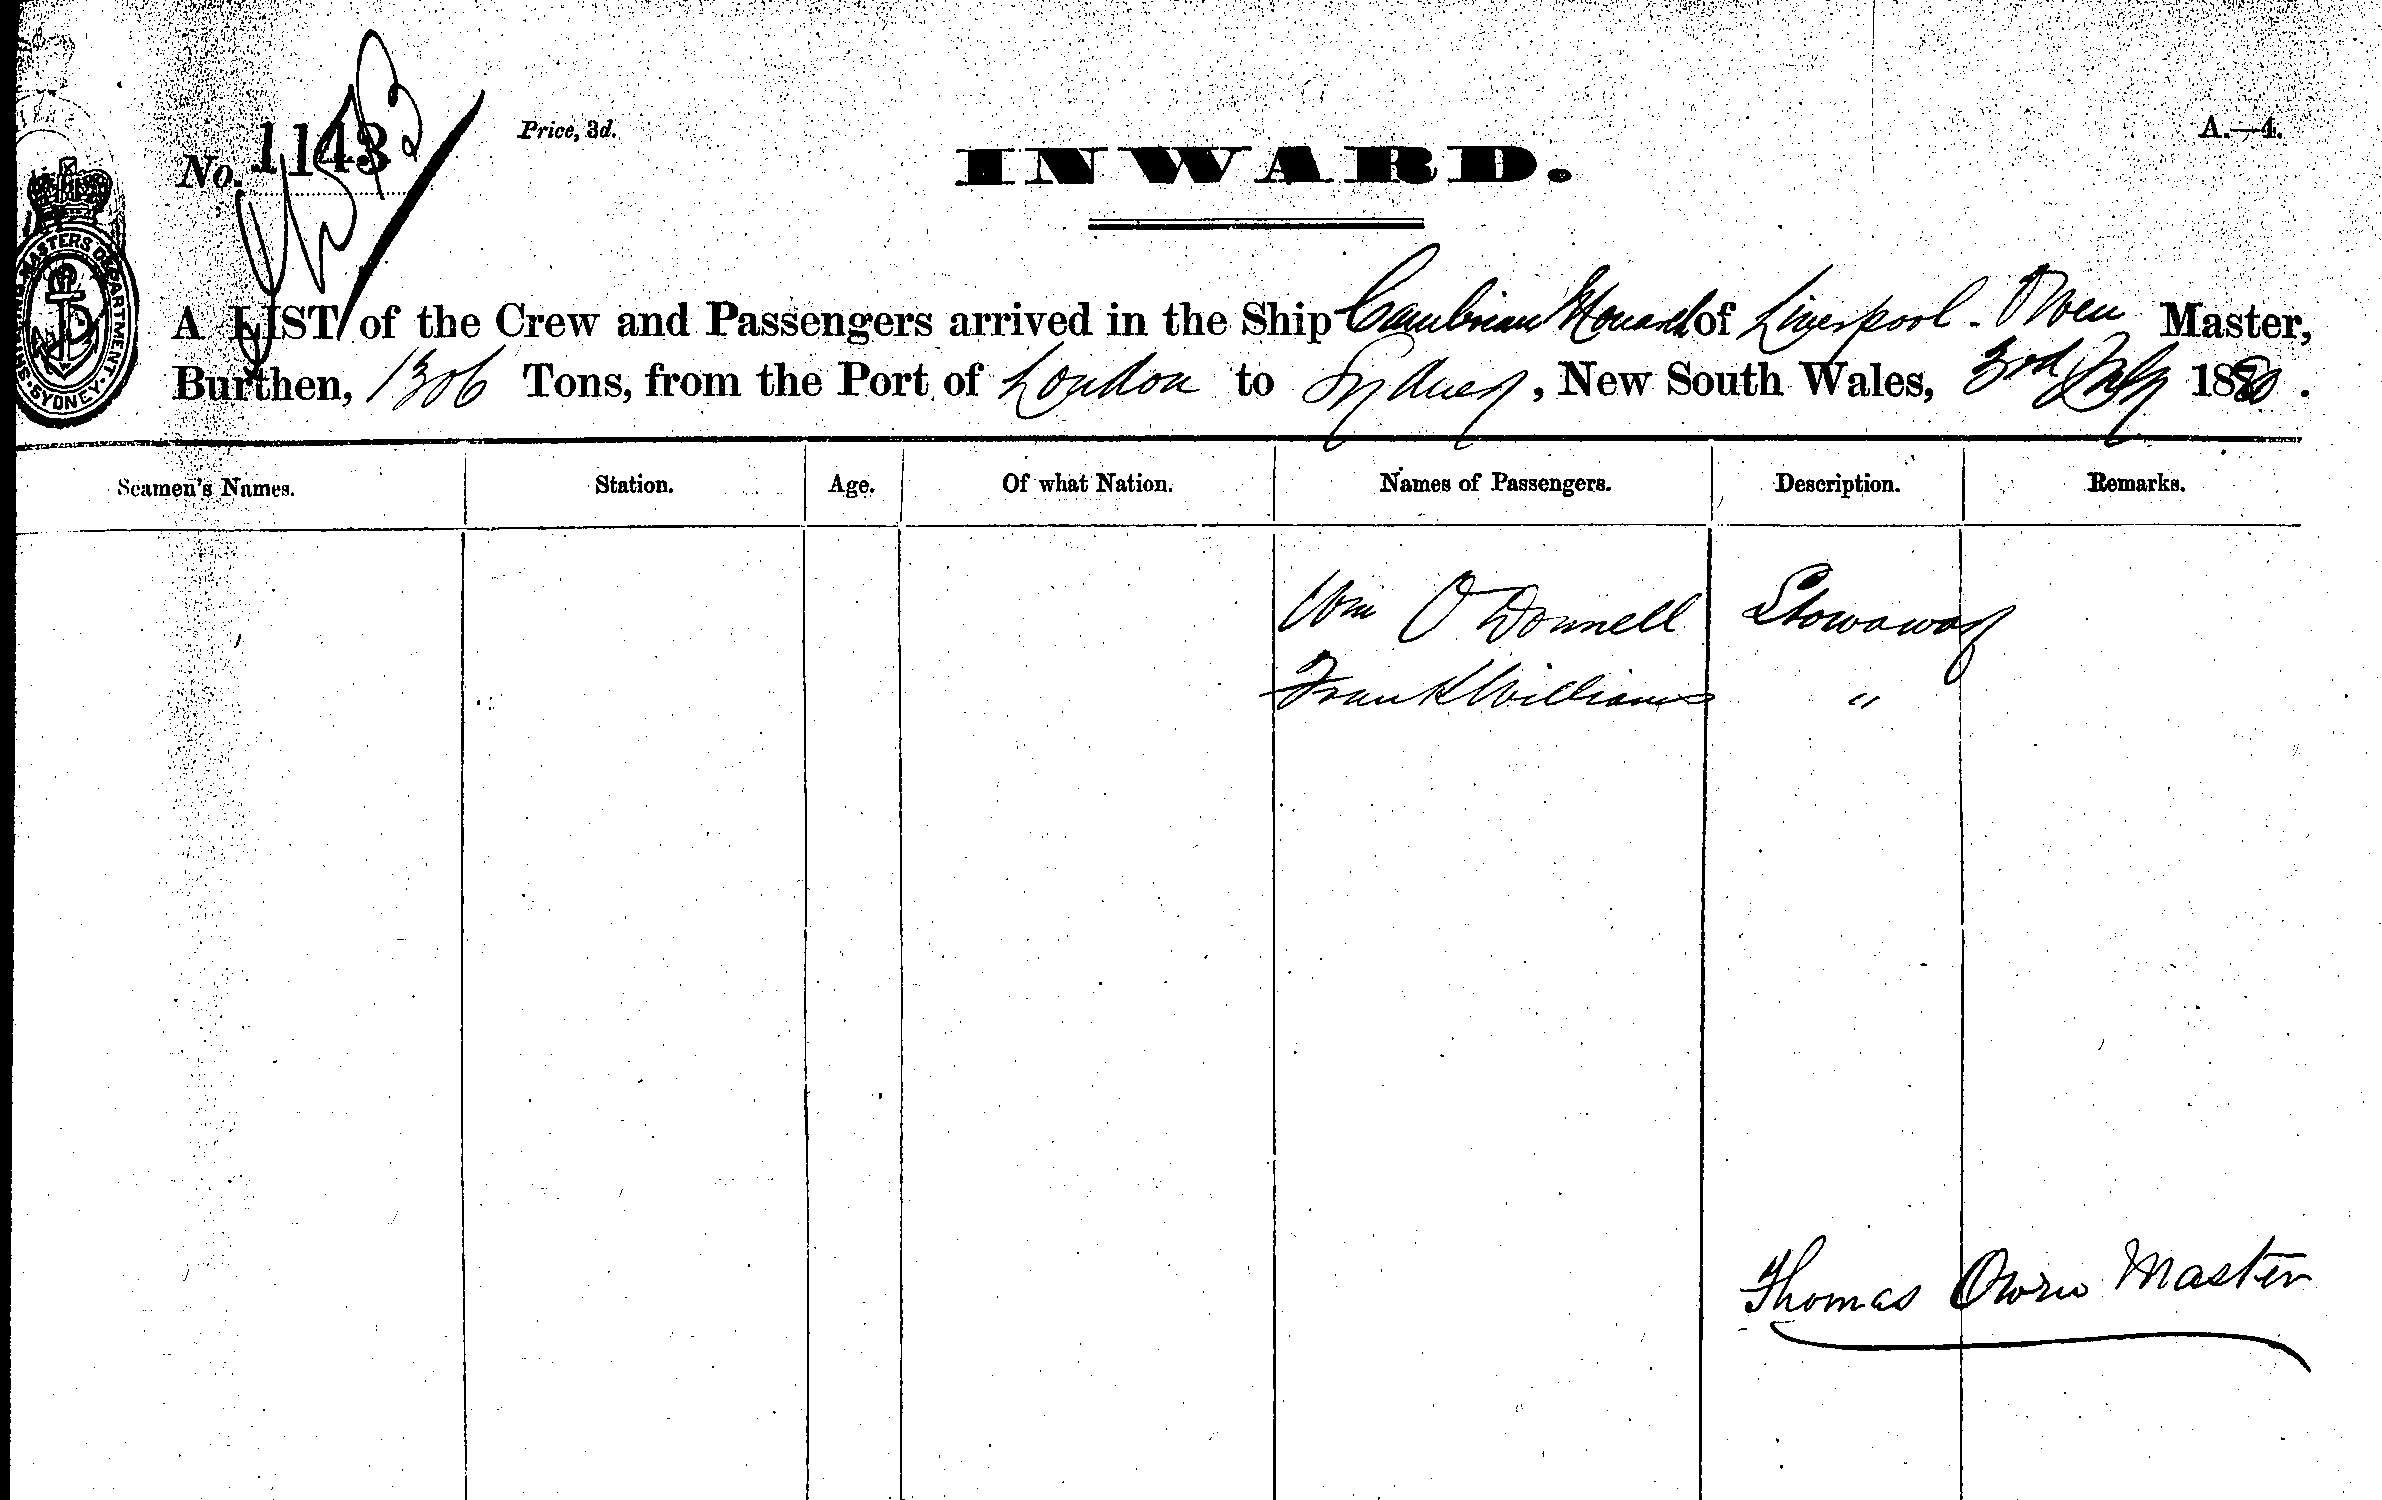 No. 1143
Price, 3d.
A.—4.
INWARD.
SHIPPING MASTERS DEPARTMENT. SYDNEY.
A LIST of the Crew and Passengers arrived in the Ship Cambrian Monarch of Liverpool - Owen Master,
Burthen, 1306 Tons, from the Port of London to Sydney, New South Wales, 3rd July 1880.
Seamen's Names. Station. Age. Of what Nation. Names of Passengers. Description. Remarks.
Wm O'Donnell Stowaway
Frank Williams "
Thomas Owen Master